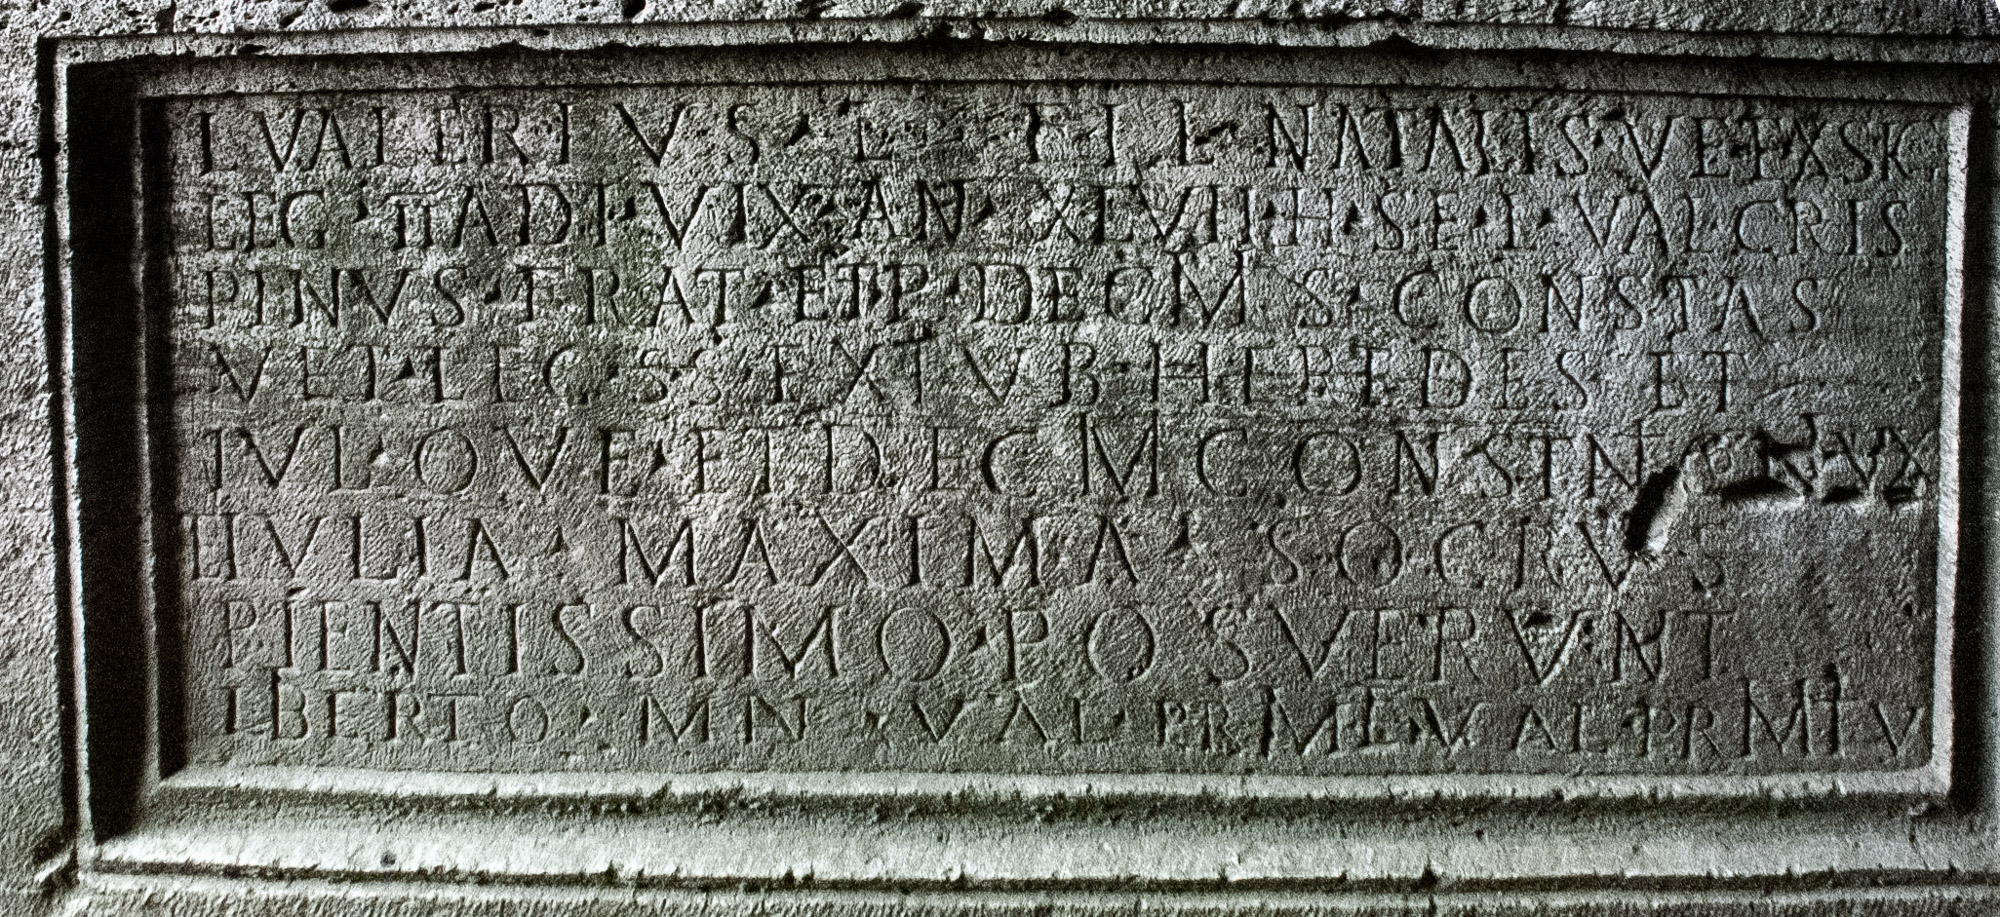 L VALERIVS · L · FIL · NATALIS · VET · EX SIG
LEG · II AD P · VIX · AN · XLVII · H · S · E · L · VAL · CRIS
PINVS · FRAT · ET P · DEC M · S · CONSTAS
VET · LEG · S S EX TVB · HEREDES ET
IVL · QVE · ET DEC M CONSTN VX
IVLIA · MAXIMA · SOCIVS
PIENTISSIMO · POSVERVNT
LIBERTO · M N · VAL · PR M L VAL · PR M